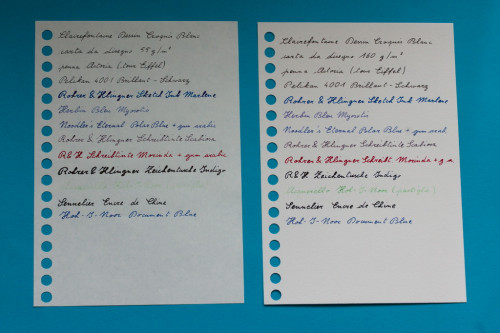 Clairefontaine Dessin Croquis Blanc
carta da disegno 95 g/m²
penna Astoria (Tour Eiffel)
Pelikan 4001 Brillant-Schwarz
Rohrer & Klingner Sketch Ink Marlene
Herbin Bleu Myosotis
Noodler's Eternal Polar Blue + gum arabic
Rohrer & Klingner Schreibtinte
R&K Schreibtinte Morinda + gum arabic
Rohrer & Klingner Zeichentusche Indigo
Sennelier Encre de Chine
Koh-I-Noor Document Blue
Clairefontaine Dessin Croquis Blanc
carta da disegno 160 g/m²
penna Astoria (Tour Eiffel)
Pelikan 4001 Brillant-Schwarz
Rohrer & Klingner Sketch Ink Marlene
Herbin Bleu Myosotis
Noodler's Eternal Polar Blue + gum arab.
Rohrer & Klingner Schreibtinte
Rohrer & Klingner Schreibt. Morinda + g.a.
R&K Zeichentusche Indigo
Acquerello Koh-I-Noor
Sennelier Encre de Chine
Koh-I-Noor Document Blue